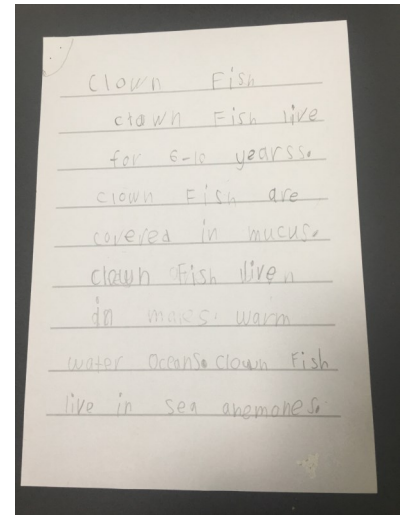 Clown Fish
clown Fish live
for 6-10 yearss.
clown Fish are
covered in mucus.
clown Fish live
in warm
water Oceans. Clown Fish
live in sea anemones.